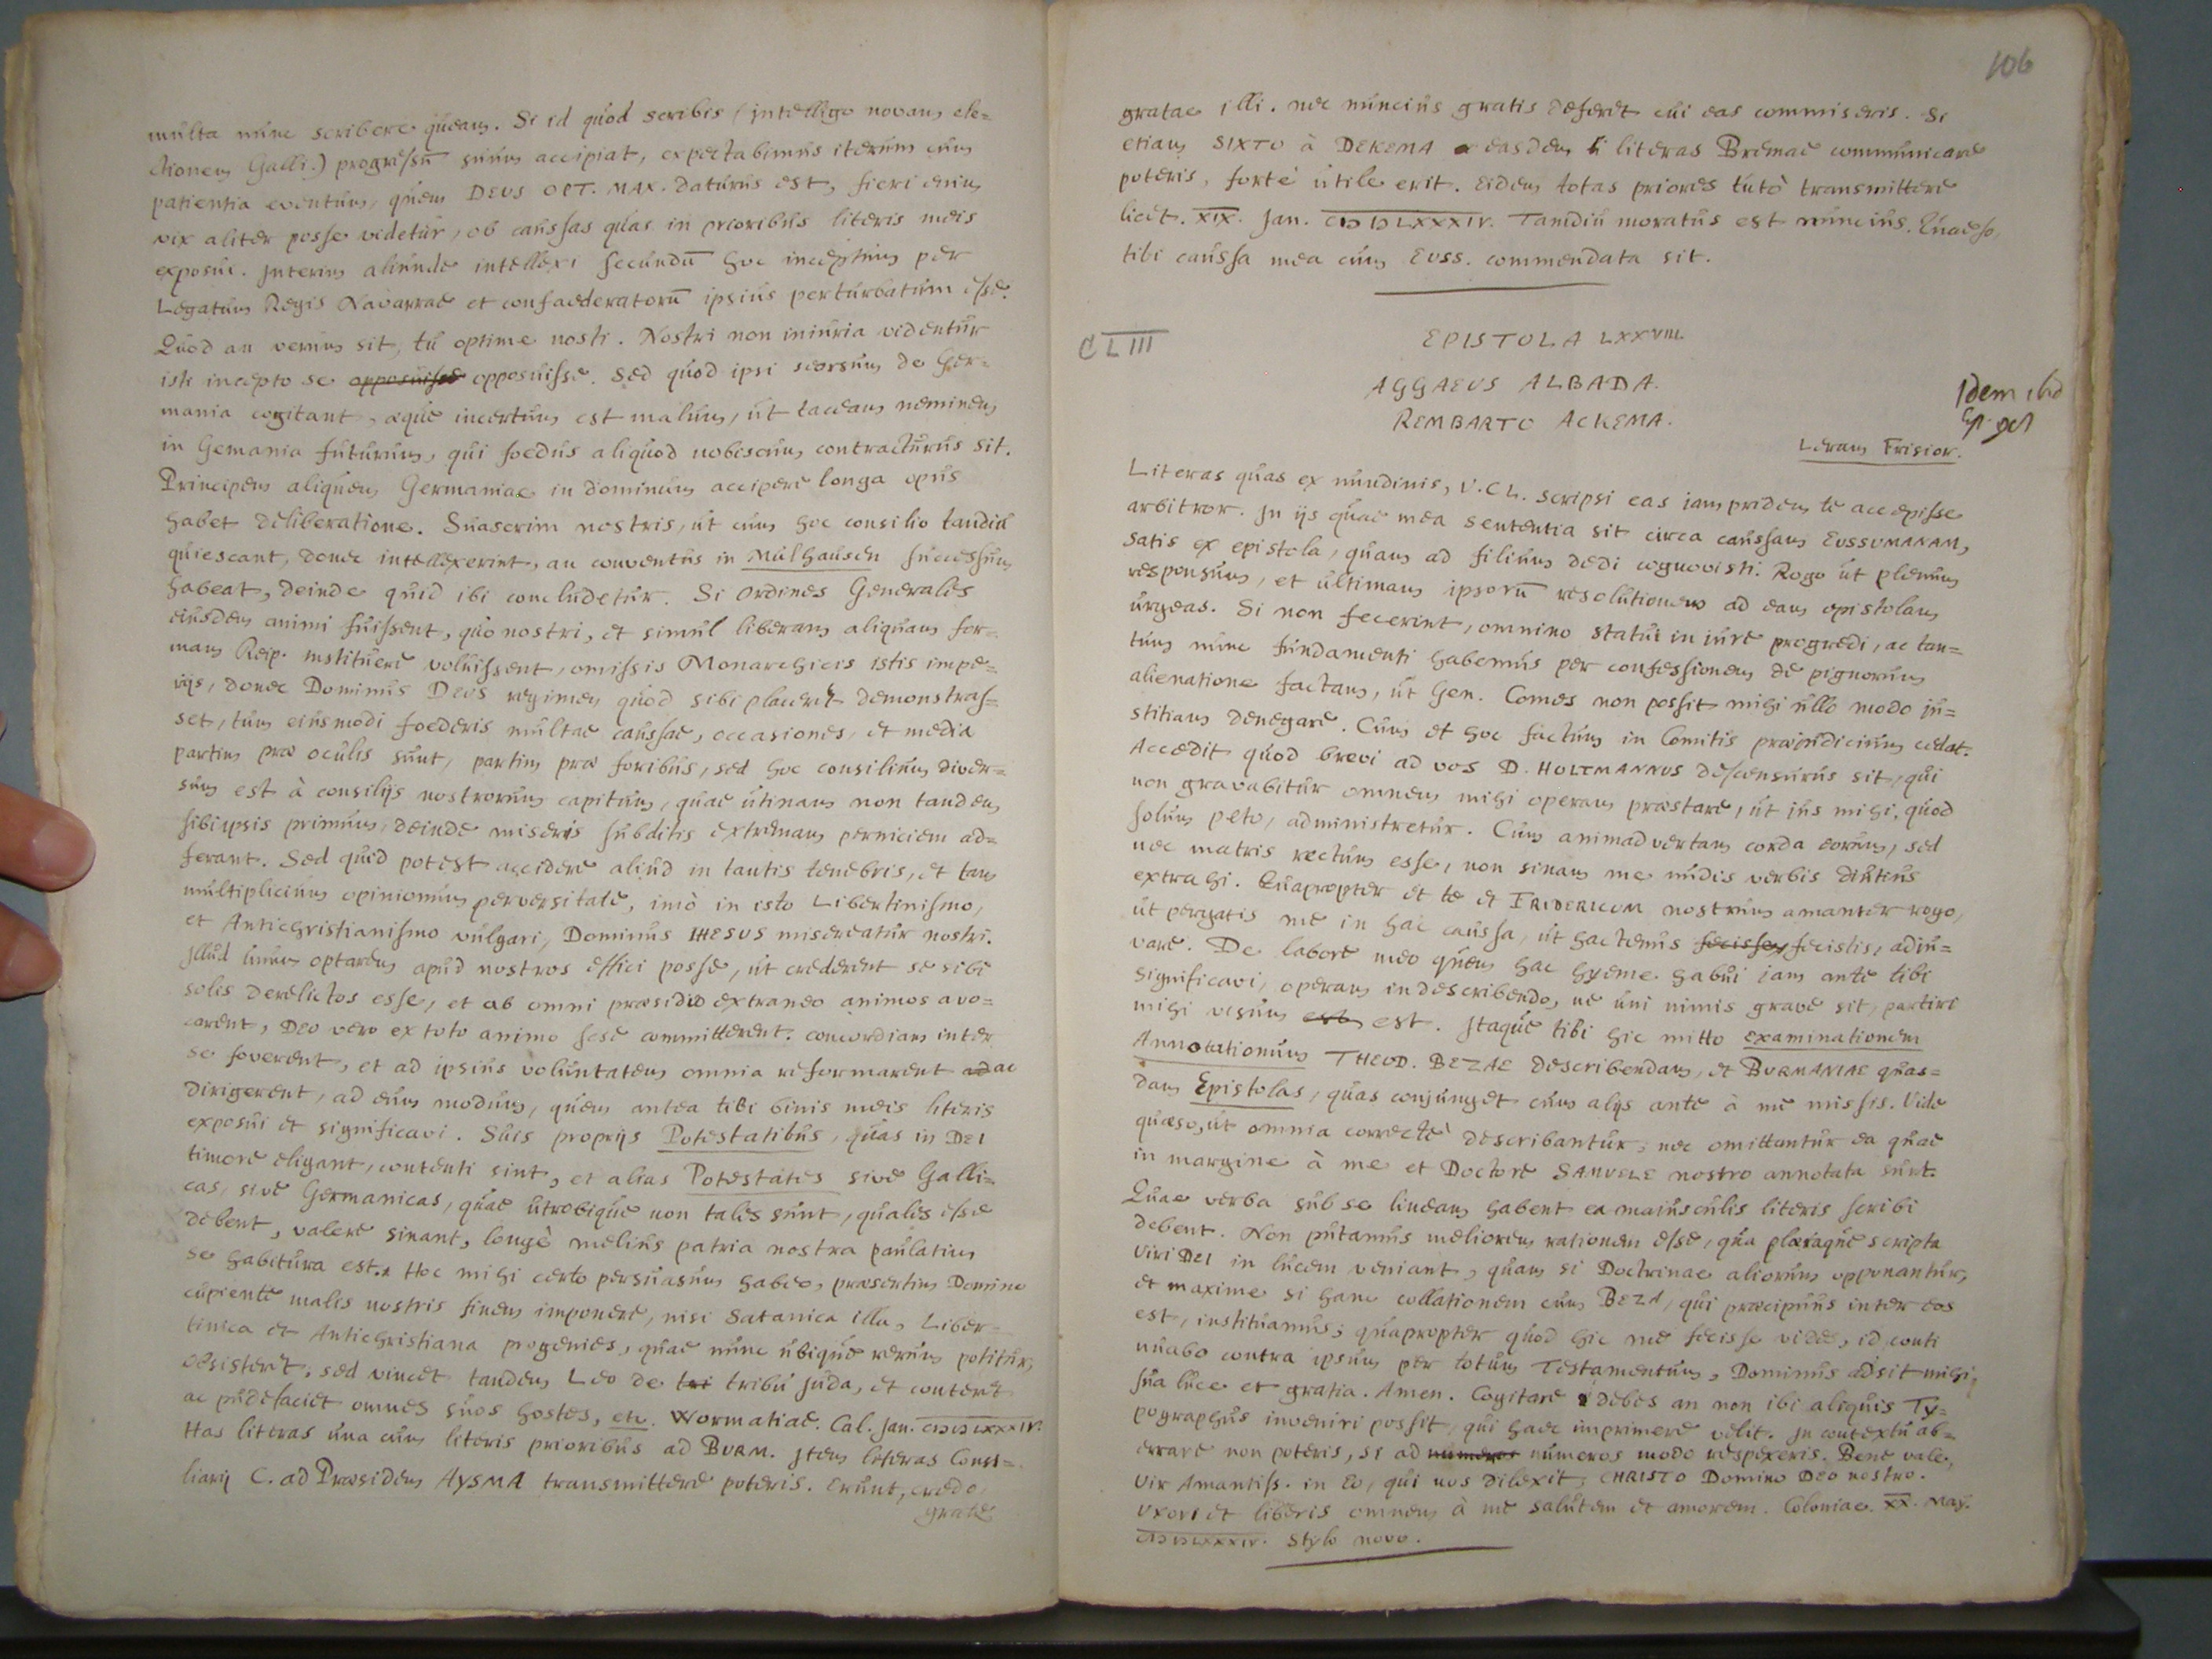 multa nunc scribere queam. Si id quod scribis (intelligo novam ele=
ctionem Galli.) progressū suum accipiat, expectabimus iterum cum
patientia eventum, quem DEUS OPT. MAX. daturus est, fieri enim
vix aliter posse videtur, ob caussas quas in prioribus literis meis
exposui. Interim aliunde intellexi secundū hoc inceptum per
Legatum Regis Navarrae et confaederatorū ipsius perturbatum esse.
Quod an verum sit, tu optime nosti. Nostri non iniuria videntur
isti incepto se opposuisse opposuisse. Sed quod ipsi seorsum de Ger=
mania cogitant, aeque incertum est malum, ut taceam neminem
in Gemania futurum, qui foedus aliquod nobiscum contracturus sit.
Principem aliquem Germaniae in dominum accipere longa opus
habet deliberatione. Suaserim nostris, ut cum hoc consilio tandiu
quiescant, donec intellexerint, an conventus in Mulhausen successum
habeat, deinde quid ibi concludetur. Si Ordines Generales
eiusdem animi fuissent, quo nostri, et simul liberam aliquam for=
mam Reip. instituere voluissent, omissis Monarchicis istis impe=
rijs, donec Dominus DEUS regimen quod sibi placeret demonstras=
set, tum eiusmodi foederis multae caussae, occasiones, et media
partim prae oculis sunt, partim prae foribus, sed hoc consilium diver=
sum est à consilijs nostrorum capitum, quae utinam non tandem
sibi ipsis primum, deinde miseris subditis extremam perniciem ad=
ferant. Sed quid potest accidere aliud in tantis tenebris, et tam
multiplicium opinionum perversitate, imò in isto Libertinismo,
et Antichristianismo vulgari, Dominus IHESUS misereatur nostri.
Illud unum optarem apud nostros effici posse, ut crederent se sibi
solis derelictos esse, et ab omni praesidio extraneo animos avo=
carent, DEO vero ex toto animo sese committerent. concordiam inter
se foverent, et ad ipsius voluntatem omnia reformarent ad ac
dirigerent, ad eum modum, quem antea tibi binis meis literis
exposui et significavi. Suis proprijs Potestatibus, quas in DEI
timore eligant, contenti sint, et alias Potestates sive Galli=
cas, sive Germanicas, quae utrobique non tales sunt, quales esse
debent, valere sinant, longè melius patria nostra paulatim
se habitura est. Hoc mihi certo persuasum habeo, praesertim Domino
cupiente malis nostris finem imponere, nisi Satanica illa, Liber=
tinica et Antichristiana progenies, quae nunc ubique rerum potitur,
obsisteret; sed vincet tandem Leo de tri tribu Juda, et conteret
ac pudefaciet omnes suos hostes, etc. Wormatiae. Cal. Jan. CIƆIƆLXXXIV.
Has literas una cum literis prioribus ad BURM. Item literas Consi=
liarij C. ad Praesidem AYSMA transmittere poteris. Erunt, credo,
gratae
106
gratae illi. nec nuncius gratis deferet cui eas commiseris. Si
etiam SIXTO à DEKEMA easdem literas Bremae communicare
poteris, fortè utile erit. Eidem totas priores tutò transmittere
licet. XIX. Jan. CIƆIƆLXXXIV. Tamdiu moratus est nuncius. Quaeso,
tibi caussa mea cum EUSS. commendata sit.
CLIII
EPISTOLA LXXVIII.
AGGAEUS ALBADA.
REMBARTO ACKEMA.
Idem ibid
Leram Frisior.
Literas quas ex nundinis, V. CL. scripsi eas iampridem te accepisse
arbitror. In ijs quae mea sententia sit circa caussam EUSSUMANAM,
satis ex epistola, quam ad filium dedi cognovisti. Rogo ut plenum
responsum, et ultimam ipsorū resolutionem ad eam epistolam
urgeas. Si non fecerint, omnino statui in iure progredi, ac tan=
tum nunc fundamenti habemus per confessionem de pignorum
alienatione factam, ut Gen. Comes non possit mihi ullo modo ju=
stitiam denegare. Cum et hoc factum in Comitis praejudicium cedat.
Accedit quod brevi ad vos D. HOLTMANNUS descensurus sit, qui
non gravabitur omnem mihi operam praestare, ut jus mihi, quod
solum peto, administretur. Cum animadvertam corda eorum, sed
nec matris rectum esse, non sinam me nudis verbis diutius
extrahi. Quapropter et te et FRIDERICUM nostrum amanter rogo,
ut pergatis me in hac caussa, ut hactenus fecisse fecistis, adiu=
vare. De labore meo quem hac hyeme habui iam ante tibi
significavi, operam in describendo, ne uni nimis grave sit, partiri
mihi visum est est. Itaque tibi hic mitto examinationem
Annotationum THEOD. BEZAE describendam, et BURMANIAE quas=
dam Epistolas, quas conjunget cum alijs ante à me missis. Vide
quaeso, ut omnia correctè describantur, nec omittantur ea quae
in margine à me et Doctore SAMUELE nostro annotata sunt.
Quae verba sub se lineam habent ea maiusculis literis scribi
debent. Non putamus meliorem rationem esse, qua pleraque scripta
Viri DEI in lucem veniant, quam si Doctrinae aliorum opponantur,
et maxime si hanc collationem cum BEZA, qui praecipuus inter eos
est, instituamus; quapropter quod hic me fecisse vides, id conti
nuabo contra ipsum per totum Testamentum, Dominus adsit mihi
sua luce et gratia. Amen. Cogitare debes an non ibi aliquis Ty=
pographus inveniri possit, qui haec imprimere velit. In contextu ab=
errare non poteris, si ad numeros numeros modo respexeris. Bene vale,
Vir Amantiss. in EO, qui nos dilexit, CHRISTO Domino DEO nostro.
Uxori et liberis omnem à me salutem et amorem. Coloniae. XX. Maij.
CIƆIƆLXXXIV. Stylo novo.